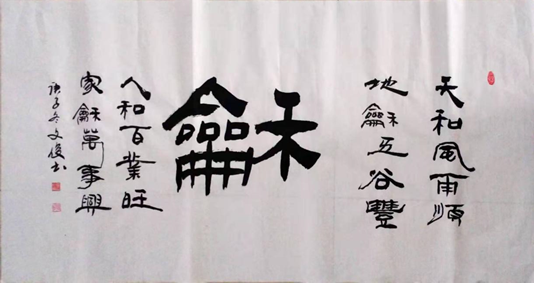 天和風雨順
地龢五谷豐
龢
人和百業旺
家龢萬事興
庚子冬文俊书